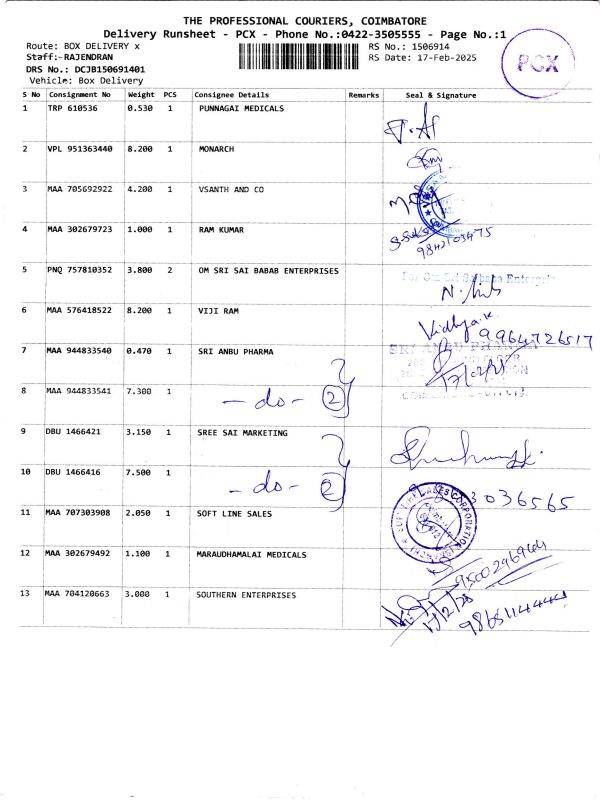 THE PROFESSIONAL COURIERS, COIMBATORE
Delivery Runsheet - PCX - Phone No.:0422-3505555 - Page No.:1
Route: BOX DELIVERY x
RS No.: 1506914
Staff:-RAJENDRAN
RS Date: 17-Feb-2025
DRS No.: DCJB150691401
Vehicle: Box Delivery
PCX
S No Consignment No Weight PCS Consignee Details Remarks Seal & Signature
1 TRP 610536 0.530 1 PUNNAGAI MEDICALS
2 VPL 951363440 8.200 1 MONARCH
3 MAA 705692922 4.200 1 VSANTH AND CO
4 MAA 302679723 1.000 1 RAM KUMAR
9842103475
5 PNQ 757810352 3.800 2 OM SRI SAI BABAB ENTERPRISES
For Om Sri Saibaba Enterpris
6 MAA 576418522 8.200 1 VIJI RAM
Vidhya.K
9964726517
7 MAA 944833540 0.470 1 SRI ANBU PHARMA
SRI ANBU PHARMA
8 MAA 944833541 7.300 1 - do - 2
9 DBU 1466421 3.150 1 SREE SAI MARKETING
10 DBU 1466416 7.500 1 - do - 2
3036565
11 MAA 707303908 2.050 1 SOFT LINE SALES
12 MAA 302679492 1.100 1 MARAUDHAMALAI MEDICALS
13 MAA 704120663 3.000 1 SOUTHERN ENTERPRISES